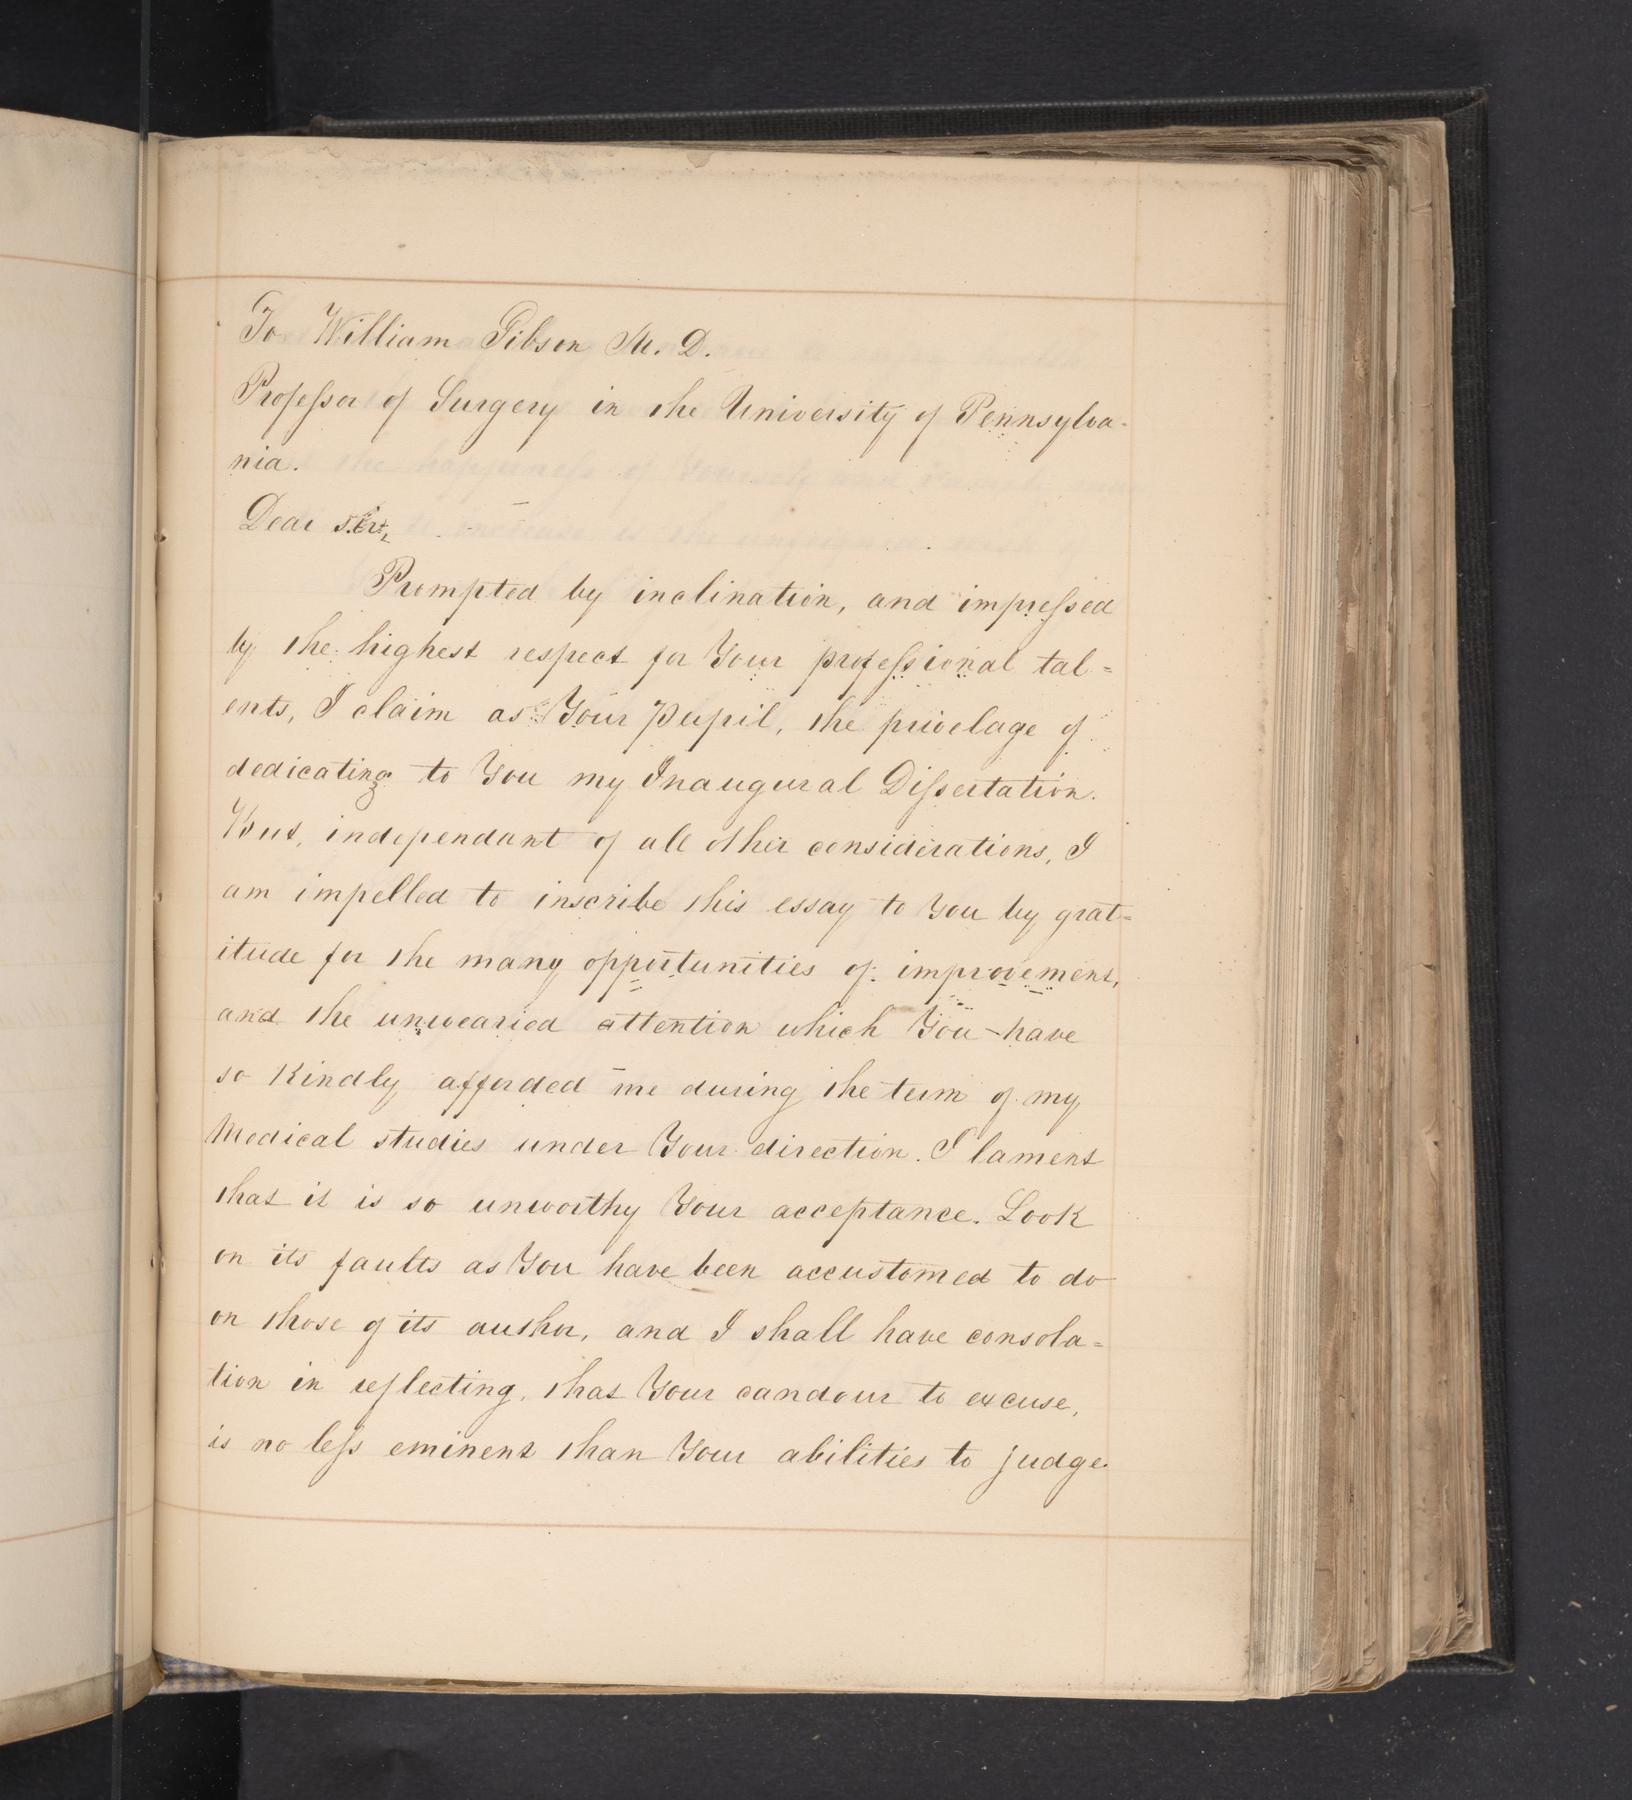 To William Gibson M. D.
Professor of Surgery in the University of Pennsylva-
nia.
Dear Sir,
Prompted by inclination, and impressed
by the highest respect for Your professional tal=
ents, I claim as Your Pupil, the privelage of
dedicating to You my Inaugural Dissertation.
But, independant of all other considerations, I
am impelled to inscribe this essay to You by grat=
itude for the many opportunities of improvement,
and the unwearied attention which You have
so Kindly afforded me during the term of my
Medical studies under Your direction. I lament
that it is so unworthy Your acceptance. Look
on its faults as You have been accustomed to do
on those of its author, and I shall have consola=
tion in reflecting, that Your candour to excuse,
is no less eminent than Your abilities to judge.